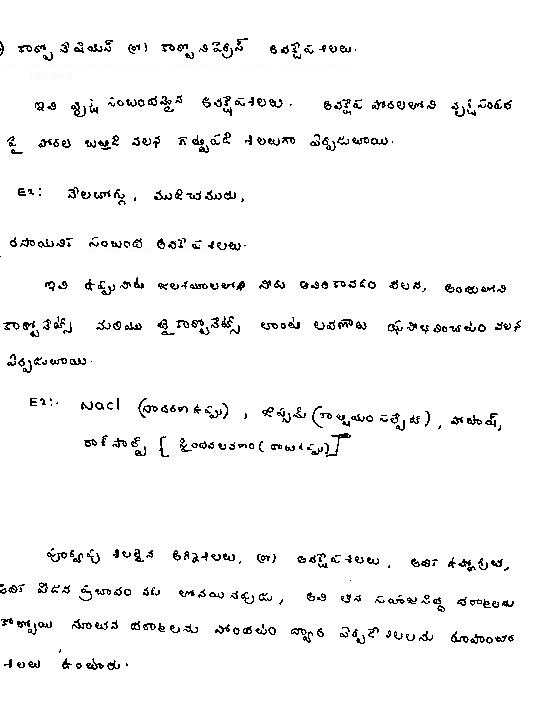 కార్బోనేషియస్ (లేదా) కార్బోనిఫెరస్ అవక్షేప శిలలు.
ఇవి వృక్ష సంబంధమైన అవక్షేపశిలలు. అవక్షేప పొరలలోని వృక్షసంపద
పై పొరల ఒత్తిడి వలన గట్టిపడి శిలలుగా ఏర్పడుతాయి.
Ex: నేలబొగ్గు, ముడిచమురు,
రసాయనిక సంబంధ అవక్షేపశిలలు.
ఇవి ఉప్పునీటి జలాశయాలలోని నీరు ఆవిరికావడం వలన, అందులోని
కార్బోనేట్స్ మరియు బైకార్బోనేట్స్ లాంటి లవణాలు ఘనీభవించటం వలన
ఏర్పడుతాయి.
Ex:- Nacl (సాధారణ ఉప్పు), జిప్సమ్ (కాల్షియం సల్ఫేట్), పొటాష్,
రాక్ సాల్ట్ [సైంధవలవణం (రాతిఉప్పు)]
పూర్వపు శిలలైన అగ్నిశిలలు, (లేదా) అవక్షేపశిలలు, అధిక ఉష్ణోగ్రత,
అధిక పీడన ప్రభావానికి లోనయినప్పుడు, అవి తమ సహజసిద్ధ ధర్మాలను
కోల్పోయి నూతన ధర్మాలను పొందటం ద్వారా ఏర్పడే శిలలను రూపాంతర
శిలలు అంటారు.